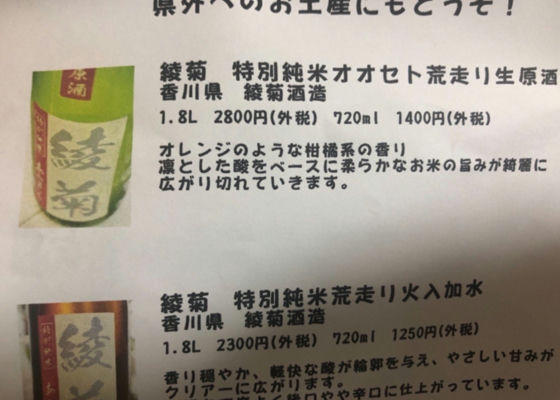 県外へのお土産にもどうぞ！
綾菊 特別純米オオセト荒走り生原酒
香川県 綾菊酒造
1.8L 2800円(外税) 720ml 1400円(外税)
オレンジのような柑橘系の香り
凛とした酸をベースに柔らかなお米の旨みが綺麗に
広がり切れていきます。
原酒
綾菊
綾菊 特別純米荒走り火入加水
香川県 綾菊酒造
1.8L 2300円(外税) 720ml 1250円(外税)
香り穏やか、軽快な酸が輪郭を与え、やさしい甘みが
クリアーに広がります。
後口やや辛口に仕上がっています。
綾